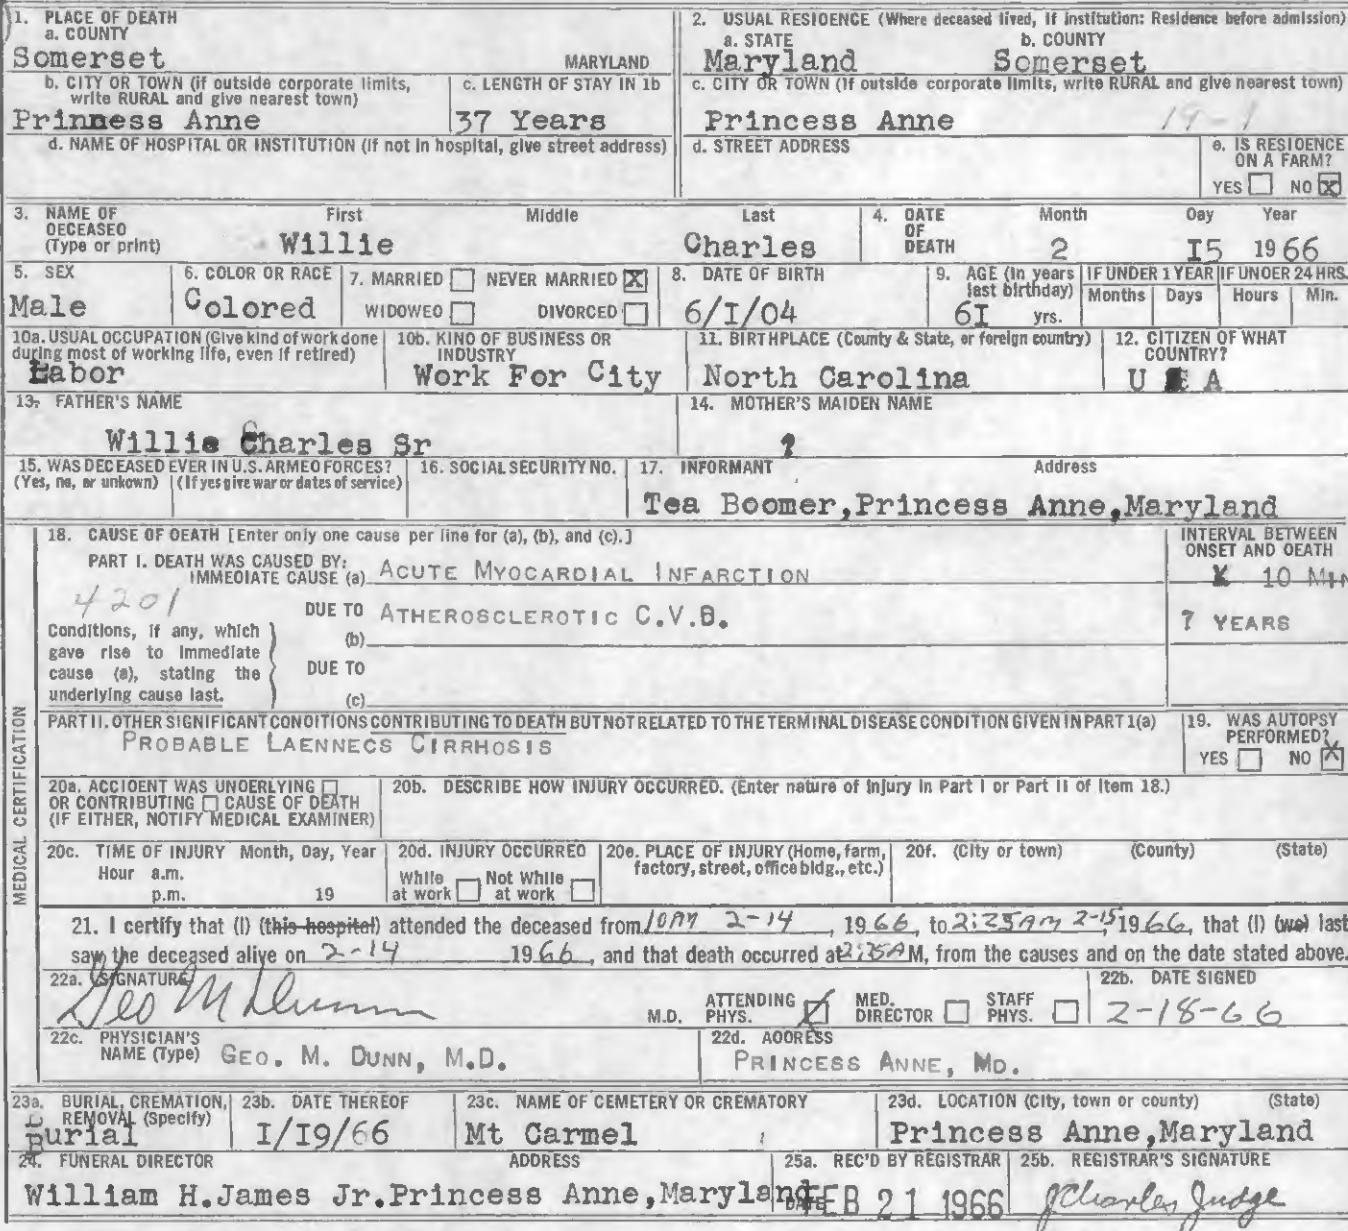 1. PLACE OF DEATH
a. COUNTY
Somerset MARYLAND
2. USUAL RESIDENCE (Where deceased lived, If institution: Residence before admission)
a. STATE b. COUNTY
Maryland Somerset
b. CITY OR TOWN (if outside corporate limits, write RURAL and give nearest town)
Prinness Anne
c. LENGTH OF STAY IN 1b
37 Years
c. CITY OR TOWN (If outside corporate limits, write RURAL and give nearest town)
Princess Anne 19-1
d. NAME OF HOSPITAL OR INSTITUTION (If not in hospital, give street address)
d. STREET ADDRESS
e. IS RESIDENCE ON A FARM?
YES NO X
3. NAME OF DECEASED (Type or print)
First Middle Last
Willie Charles
4. DATE OF DEATH
Month Day Year
2 I5 1966
5. SEX
Male
6. COLOR OR RACE
Colored
7. MARRIED NEVER MARRIED X
WIDOWED DIVORCED
8. DATE OF BIRTH
6/I/04
9. AGE (In years last birthday)
6I yrs.
IF UNDER 1 YEAR IF UNDER 24 HRS.
Months Days Hours Min.
10a. USUAL OCCUPATION (Give kind of work done during most of working life, even if retired)
Labor
10b. KIND OF BUSINESS OR INDUSTRY
Work For City
11. BIRTHPLACE (County & State, or foreign country)
North Carolina
12. CITIZEN OF WHAT COUNTRY?
U S A
13. FATHER'S NAME
Willie Charles Sr
14. MOTHER'S MAIDEN NAME
?
15. WAS DECEASED EVER IN U.S. ARMED FORCES?
(Yes, no, or unkown) (If yes give war or dates of service)
16. SOCIAL SECURITY NO.
17. INFORMANT Address
Tea Boomer,Princess Anne,Maryland
MEDICAL CERTIFICATION
18. CAUSE OF DEATH [Enter only one cause per line for (a), (b), and (c).]
INTERVAL BETWEEN ONSET AND DEATH
PART I. DEATH WAS CAUSED BY:
IMMEDIATE CAUSE (a) ACUTE MYOCARDIAL INFARCTION 10 MIN
4201
DUE TO (b) ATHEROSCLEROTIC C.V.D. ? YEARS
Conditions, if any, which gave rise to immediate cause (a), stating the underlying cause last.
DUE TO
(c)
PART II. OTHER SIGNIFICANT CONDITIONS CONTRIBUTING TO DEATH BUT NOT RELATED TO THE TERMINAL DISEASE CONDITION GIVEN IN PART 1(a)
PROBABLE LAENNECS CIRRHOSIS
19. WAS AUTOPSY PERFORMED?
YES NO X
20a. ACCIDENT WAS UNDERLYING
OR CONTRIBUTING CAUSE OF DEATH
(IF EITHER, NOTIFY MEDICAL EXAMINER)
20b. DESCRIBE HOW INJURY OCCURRED. (Enter nature of injury in Part I or Part II of Item 18.)
20c. TIME OF INJURY Month, Day, Year
Hour a.m.
p.m. 19
20d. INJURY OCCURRED
While at work Not While at work
20e. PLACE OF INJURY (Home, farm, factory, street, office bldg., etc.)
20f. (City or town) (County) (State)
21. I certify that (I) (this hospital) attended the deceased from 10AM 2-14, 1966, to 2:25AM 2-15, 1966, that (I) (we) last
saw the deceased alive on 2-14 1966, and that death occurred at 2:25AM, from the causes and on the date stated above.
22a. SIGNATURE
Geo M Dunn M.D.
ATTENDING PHYS. MED. DIRECTOR STAFF PHYS.
22b. DATE SIGNED
2-18-66
22c. PHYSICIAN'S NAME (Type) GEO. M. DUNN, M.D.
22d. ADDRESS
PRINCESS ANNE, MD.
23a. BURIAL, CREMATION, REMOVAL (Specify)
Burial
23b. DATE THEREOF
I/I9/66
23c. NAME OF CEMETERY OR CREMATORY
Mt Carmel
23d. LOCATION (City, town or county) (State)
Princess Anne,Maryland
24. FUNERAL DIRECTOR ADDRESS
William H.James Jr.Princess Anne,Maryland
25a. REC'D BY REGISTRAR
DATE FEB 21 1966
25b. REGISTRAR'S SIGNATURE
J Charles Judge